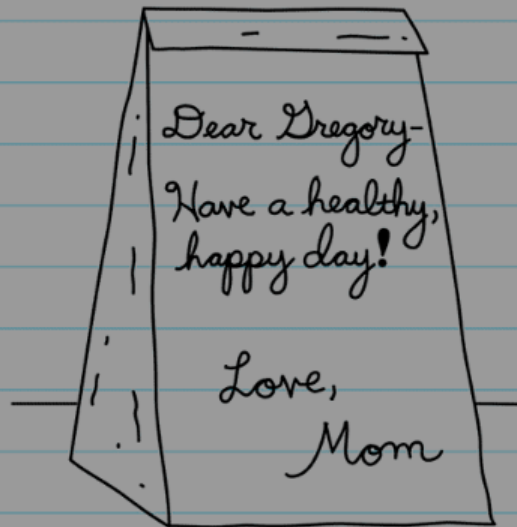 Dear Gregory-
Have a healthy,
happy day!
Love,
Mom